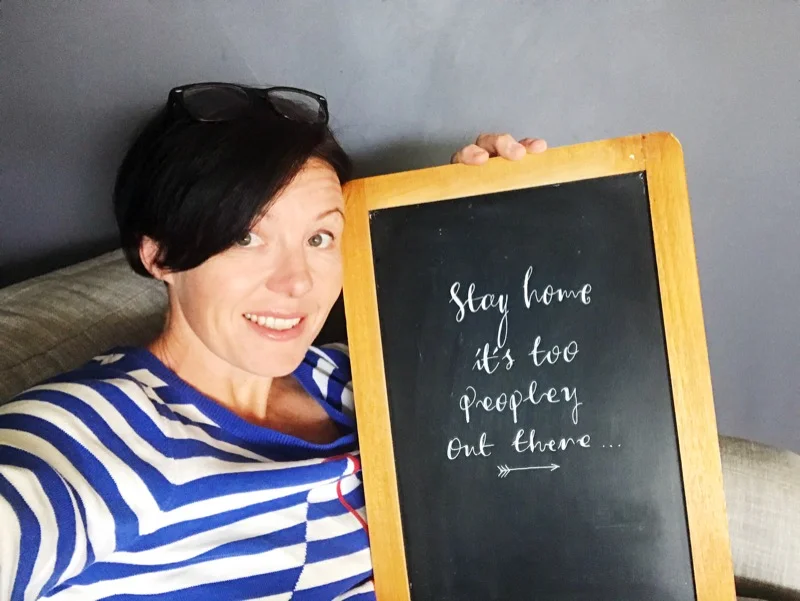 Stay home
it's too
peopley
out there...